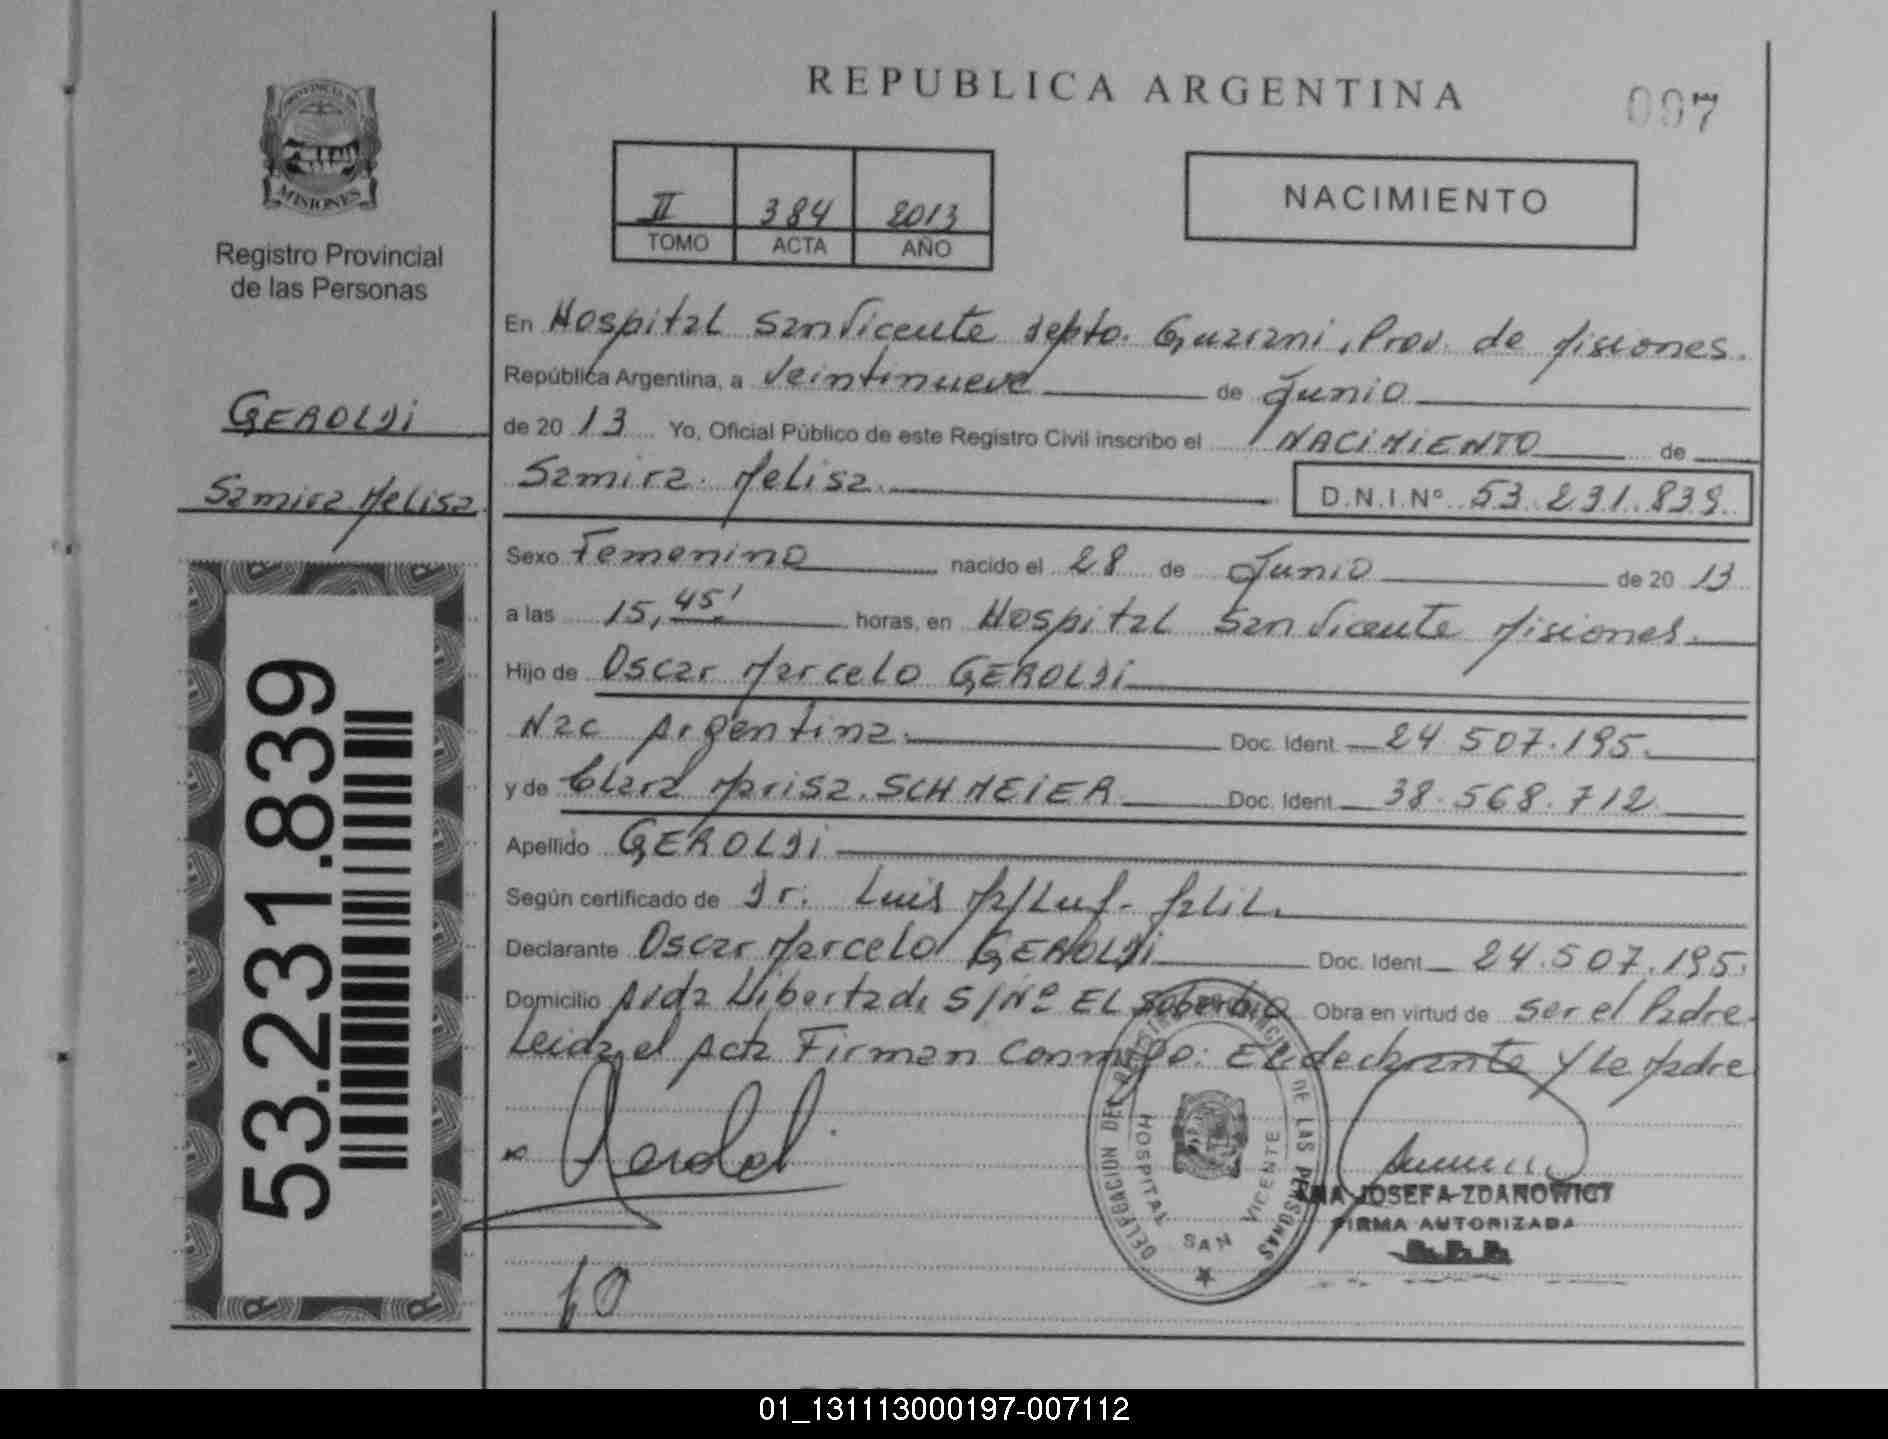 REPUBLICA ARGENTINA
007
PROVINCIA DE
MISIONES
Registro Provincial
de las Personas
GEROLDI
Samira Melisa
53.231.839
II 384 2013
TOMO ACTA AÑO
NACIMIENTO
En Hospital San Vicente Depto. Guarani, Prov. de Misiones.
República Argentina, a Veintinueve de Junio
de 20 13 Yo, Oficial Público de este Registro Civil inscribo el NACIMIENTO de
Samira Melisa. D.N.I.Nº 53.231.839
Sexo Femenino nacido el 28 de Junio de 20 13
a las 15,45' horas, en Hospital San Vicente Misiones.
Hijo de Oscar Marcelo GEROLDI
Nac Argentina. Doc. Ident. 24.507.195.
y de Clara Marisa. SCHMEIER Doc. Ident. 38.568.712
Apellido GEROLDI
Según certificado de Dr. Luis
Declarante Oscar Marcelo GEROLDI Doc. Ident. 24.507.195.
Domicilio Avda Libertad. S/Nº EL Soberbio Obra en virtud de ser el Padre
Leida el Acta Firman Conmigo: El declarante y la Madre
DELEGACION DEL REGISTRO PROVINCIAL DE LAS PERSONAS
HOSPITAL SAN VICENTE
ANA JOSEFA ZDANOWICZ
FIRMA AUTORIZADA
01_131113000197-007112